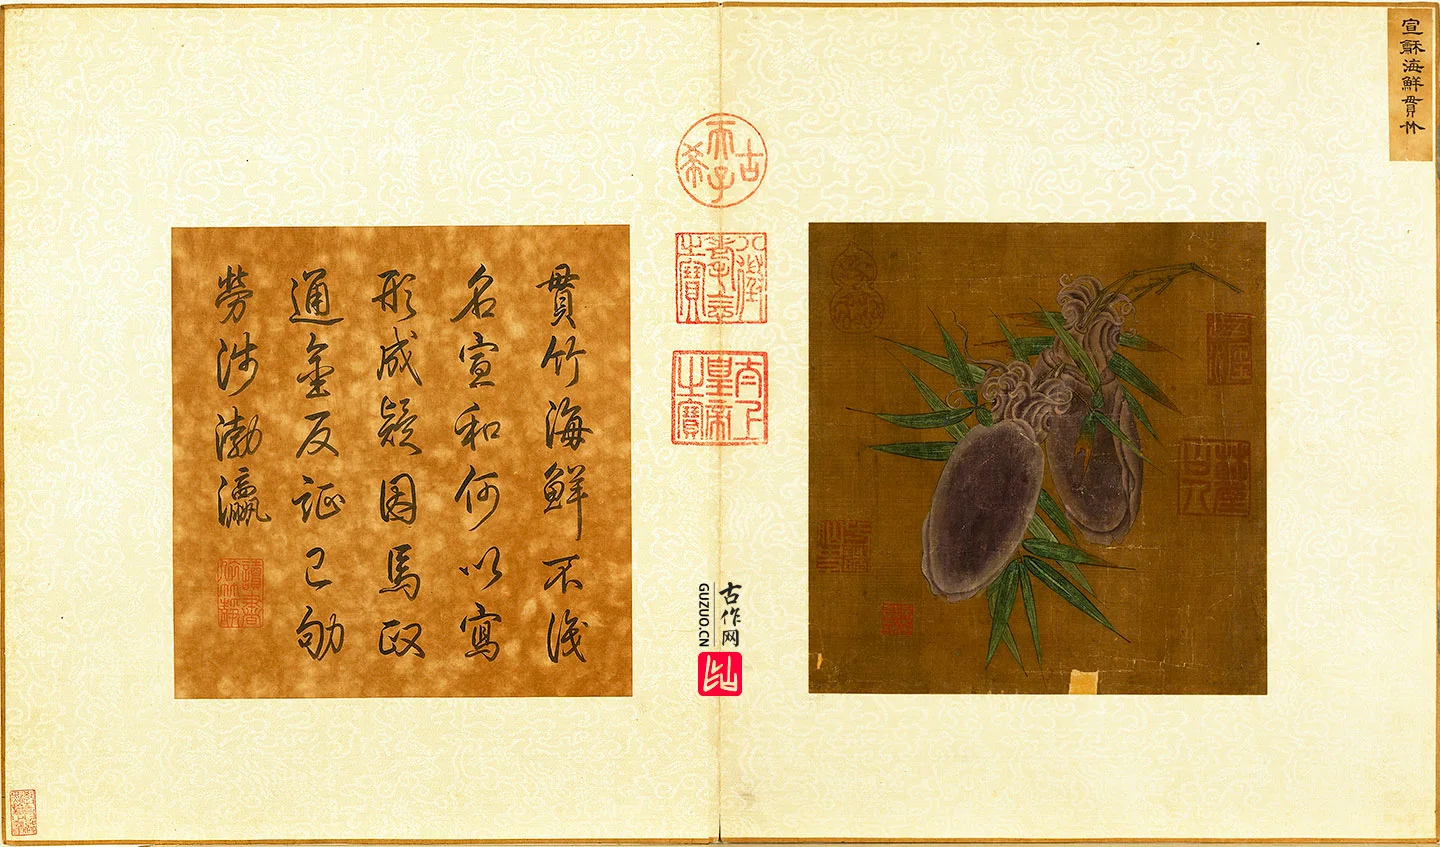 宣龢海鮮貫竹
古希天子
八徵耄念之寶
太上皇帝之寶
貫竹海鮮不識
名宣和何以寫
形成疑因馬政
通金反証已劬
勞涉渤瀛
古作网
GUZUO.CN